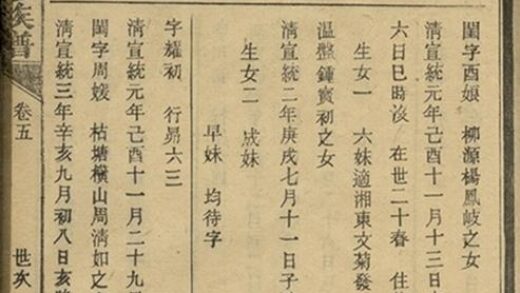 閨字酉娘 柳源楊鳳岐之女
清宣統元年己酉十一月十三日
六日巳時沒 在世二十春 住
生女一 六妹適湘東文菊發
溫盤鍾寶初之女
清宣統二年庚戌七月十一日子
生女二 成妹
早妹 均待字
字耀初 行昴六三
清宣統元年己酉十一月二十九
閨字周媛 枯塘橫山周清如之
清宣統三年辛亥九月初八日亥
族譜
卷五
世次